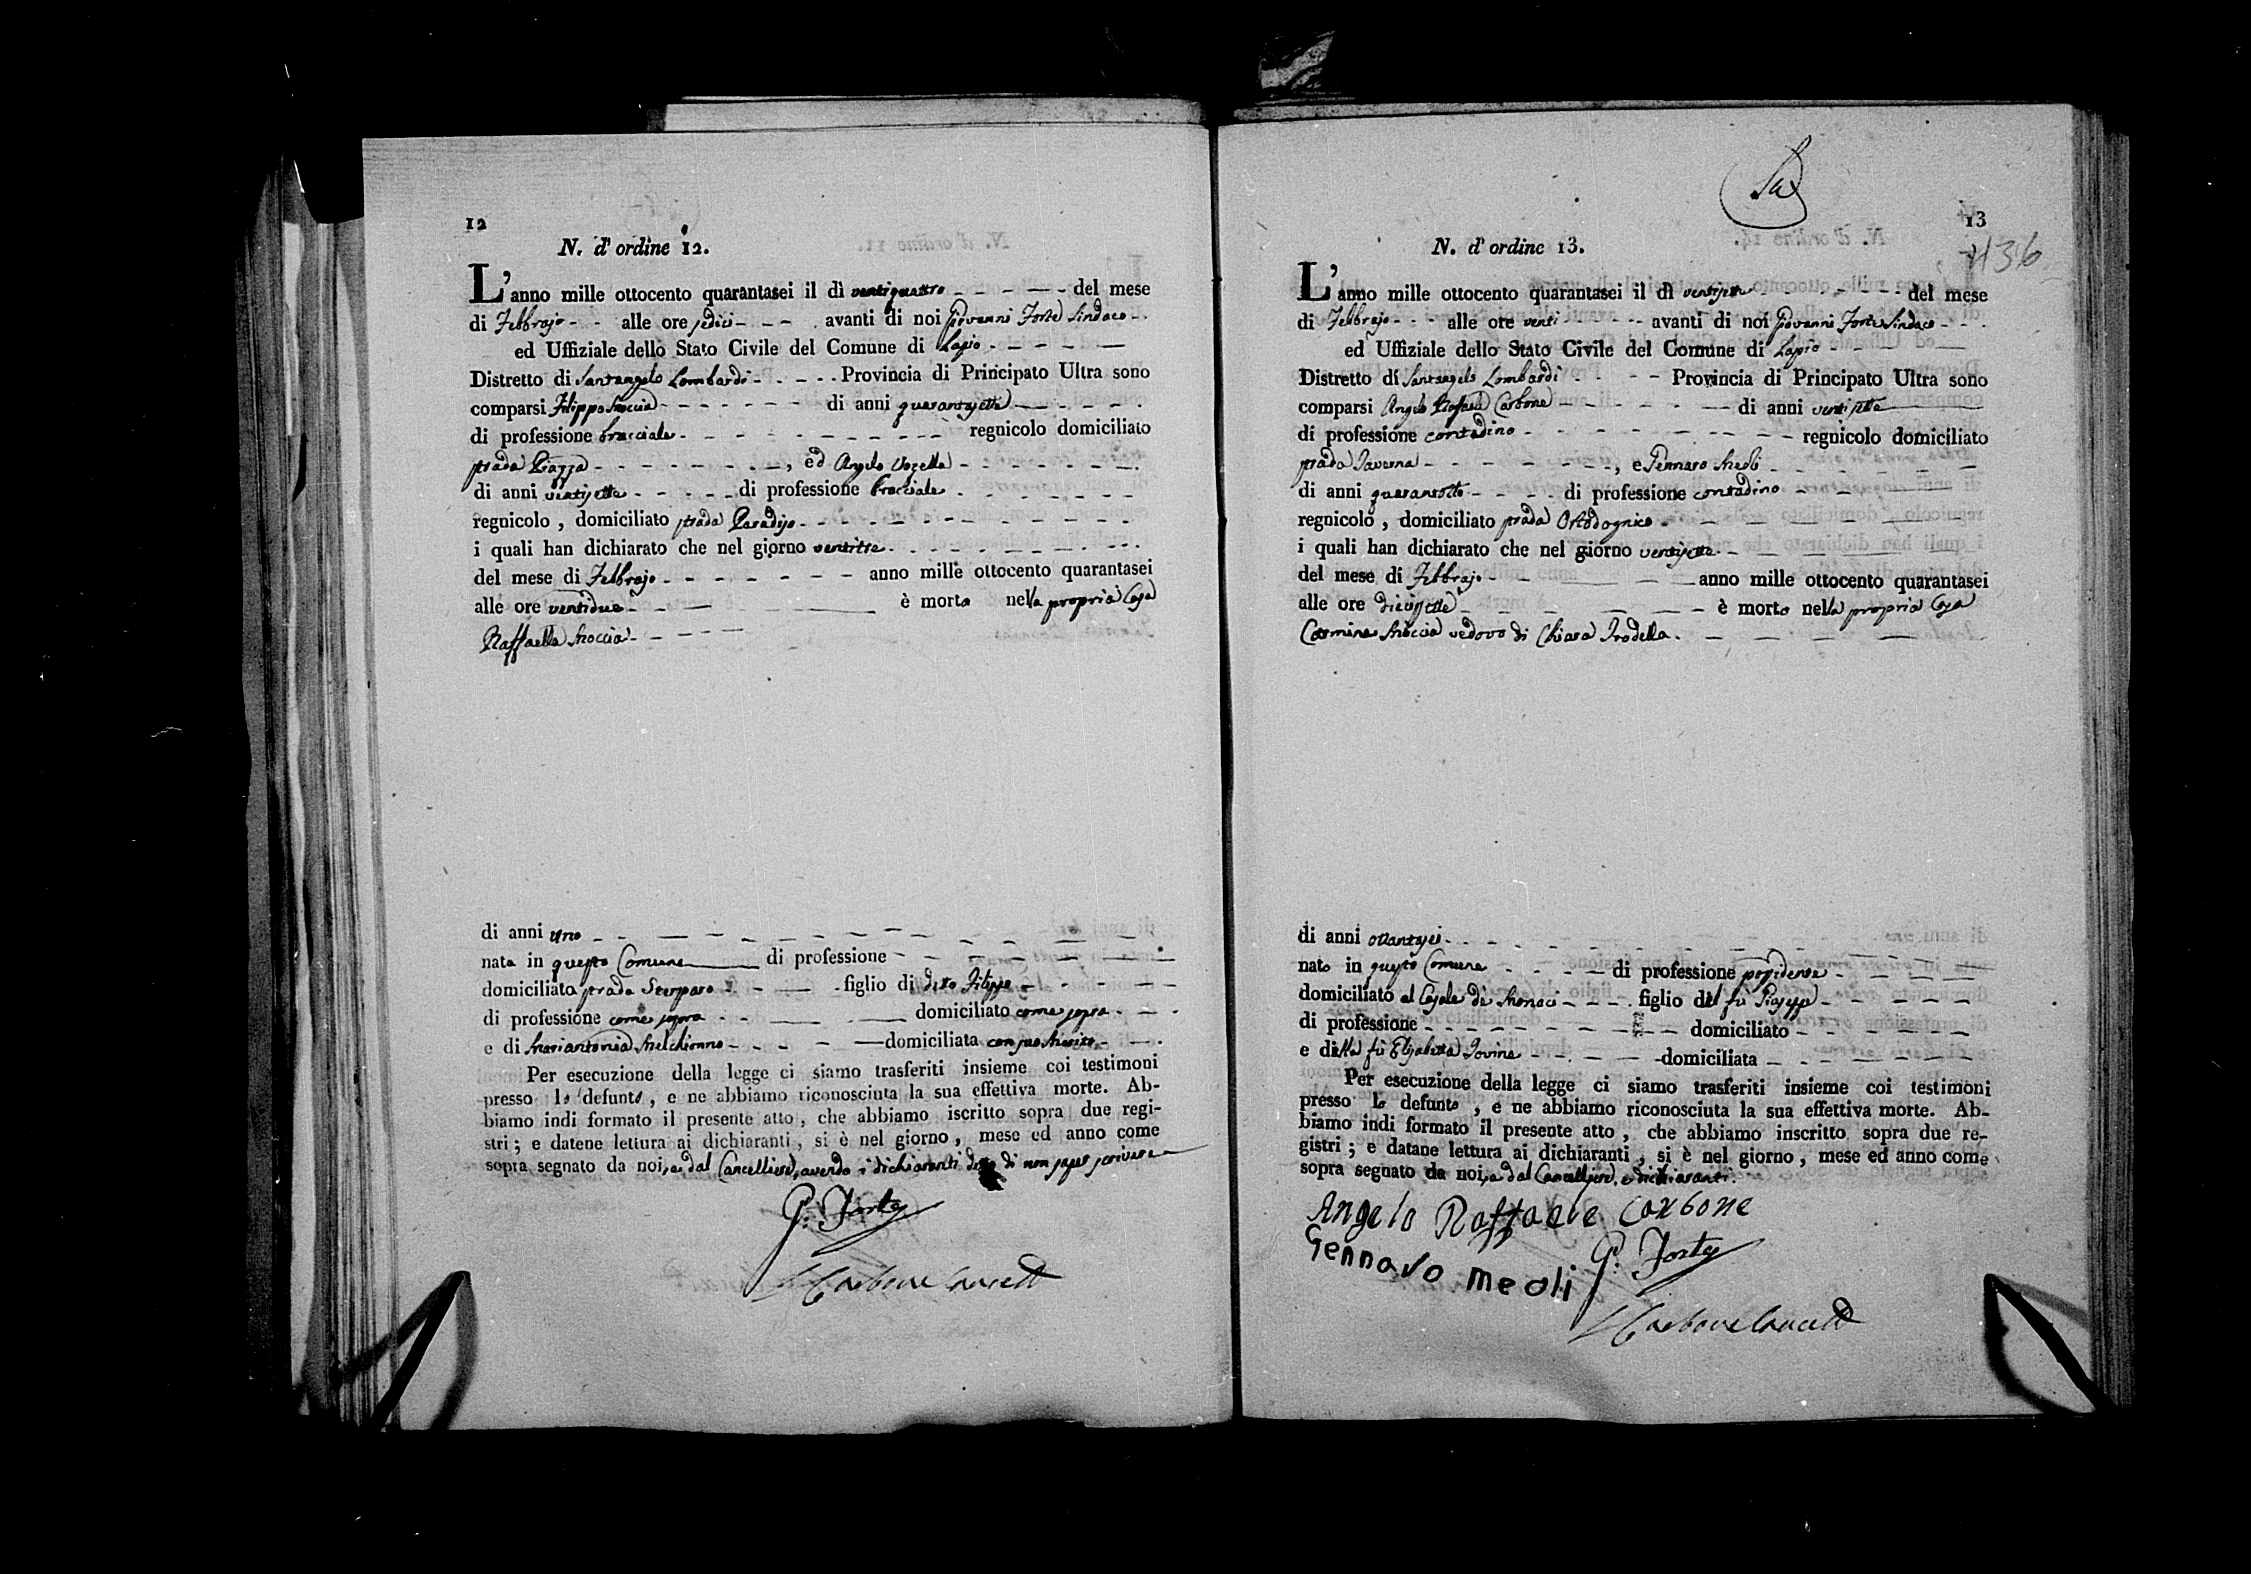 12
N. d' ordine 12.
L'anno mille ottocento quarantasei il dì ventiquattro del mese
di Febbrajo alle ore sedici avanti di noi Giovanni Forte Sindaco
ed Uffiziale dello Stato Civile del Comune di Lapio
Distretto di Santangelo Lombardi Provincia di Principato Ultra sono
comparsi Filippo Moccia di anni quarantasette
di professione bracciale regnicolo domiciliato
strada Piazza, ed Angelo Vozella
di anni ventisette di professione bracciale
regnicolo, domiciliato strada Paradiso
i quali han dichiarato che nel giorno ventitre
del mese di Febbrajo anno mille ottocento quarantasei
alle ore ventidue è morta nella propria Casa
Raffaella Moccia
di anni uno
nata in questo Comune di professione
domiciliata strada figlio di detto Filippo
di professione come sopra domiciliato come sopra
e di Mariantonia Melchionno domiciliata con suo Marito
Per esecuzione della legge ci siamo trasferiti insieme coi testimoni
presso lo defunto, e ne abbiamo riconosciuta la sua effettiva morte. Ab-
biamo indi formato il presente atto, che abbiamo iscritto sopra due regi-
stri; e datene lettura ai dichiaranti, si è nel giorno, mese ed anno come
sopra segnato da noi, e dal Cancelliere, avendo i dichiaranti detto di non saper scrivere
G. Forte
Carbone Cancell
13
136
N. d' ordine 13.
L'anno mille ottocento quarantasei il dì ventisette del mese
di Febbrajo alle ore venti avanti di noi Giovanni Forte Sindaco
ed Uffiziale dello Stato Civile del Comune di Lapio
Distretto di Santangelo Lombardi Provincia di Principato Ultra sono
comparsi Angelo Raffaele Carbone di anni ventisette
di professione contadino regnicolo domiciliato
strada Taverna, e Gennaro Meoli
di anni quarantotto di professione contadino
regnicolo, domiciliato strada
i quali han dichiarato che nel giorno ventisette
del mese di Febbrajo anno mille ottocento quarantasei
alle ore diecissette è morto nella propria Casa
Carmine Moccia vedovo di Chiara Trodella.
di anni ottantasei
nato in questo Comune di professione possidente
domiciliato al Casale de Monaci figlio del fù Giuseppe
di professione domiciliato
e della fù Elisabetta Iovine domiciliata
Per esecuzione della legge ci siamo trasferiti insieme coi testimoni
presso lo defunto, e ne abbiamo riconosciuta la sua effettiva morte. Ab-
biamo indi formato il presente atto, che abbiamo inscritto sopra due re-
gistri; e datane lettura ai dichiaranti, si è nel giorno, mese ed anno come
sopra segnato da noi, e dal Cancelliere, e dichiaranti.
Angelo Raffaele Carbone
Gennaro Meoli
G. Forte
Carbone Cancell